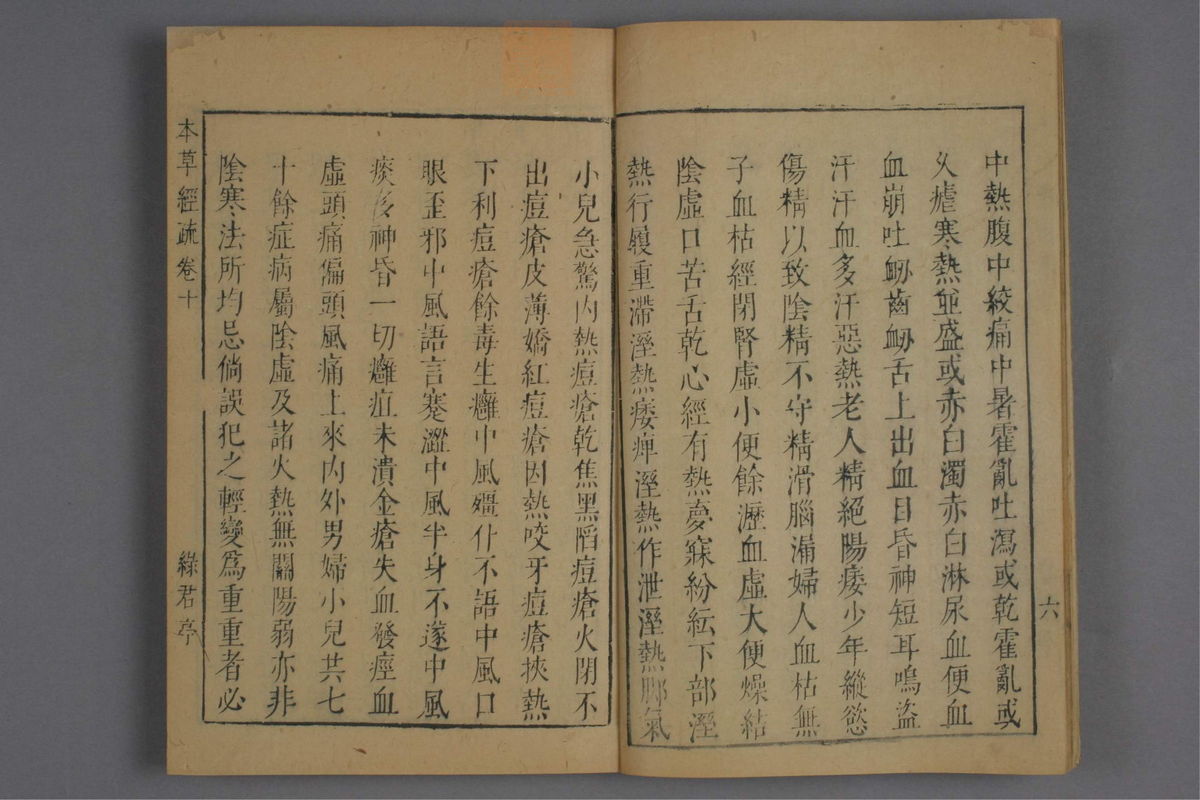 中熱腹中絞痛中暑霍亂吐瀉或乾霍亂或
久瘧寒熱並盛或赤白濁赤白淋尿血便血
血崩吐衂齒衂舌上出血目昏神短耳鳴盜
汗汗血多汗惡熱老人精絕陽痿少年縱慾
傷精以致陰精不守精滑腦漏婦人血枯無
子血枯經閉腎虛小便餘瀝血虛大便燥結
陰虛口苦舌乾心經有熱夢寐紛紜下部溼
熱行履重滯溼熱痿痺溼熱作泄溼熱脚氣
六
小兒急驚內熱痘瘡乾焦黑陷痘瘡火閉不
出痘瘡皮薄嬌紅痘瘡因熱咬牙痘瘡挾熱
下利痘瘡餘毒生癰中風殭仆不語中風口
眼歪邪中風語言蹇澀中風半身不遂中風
痰多神昏一切癰疽未潰金瘡失血發痙血
虛頭痛偏頭風痛上來內外男婦小兒共七
十餘症病屬陰虛及諸火熱無關陽弱亦非
陰寒法所均忌倘誤犯之輕變爲重重者必
本草經疏 卷十 綠君亭